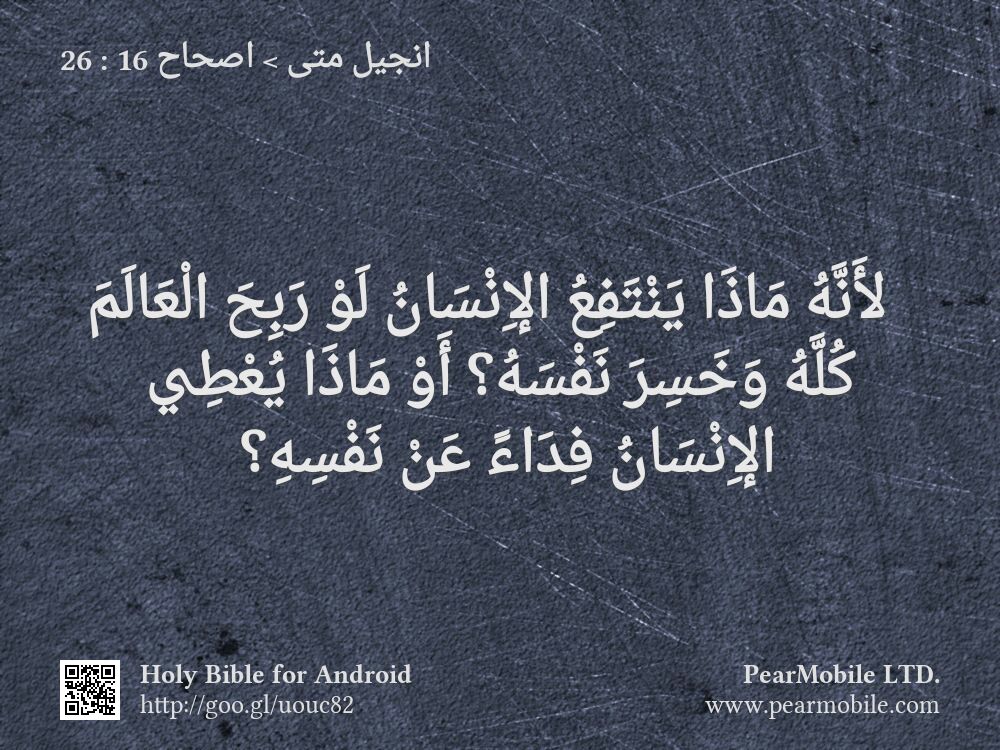 انجيل متى > اصحاح 16 : 26
لأَنَّهُ مَاذَا يَنْتَفِعُ الإِنْسَانُ لَوْ رَبِحَ الْعَالَمَ
كُلَّهُ وَخَسِرَ نَفْسَهُ؟ أَوْ مَاذَا يُعْطِي
الإِنْسَانُ فِدَاءً عَنْ نَفْسِهِ؟
Holy Bible for Android
http://goo.gl/uouc82
PearMobile LTD.
www.pearmobile.com